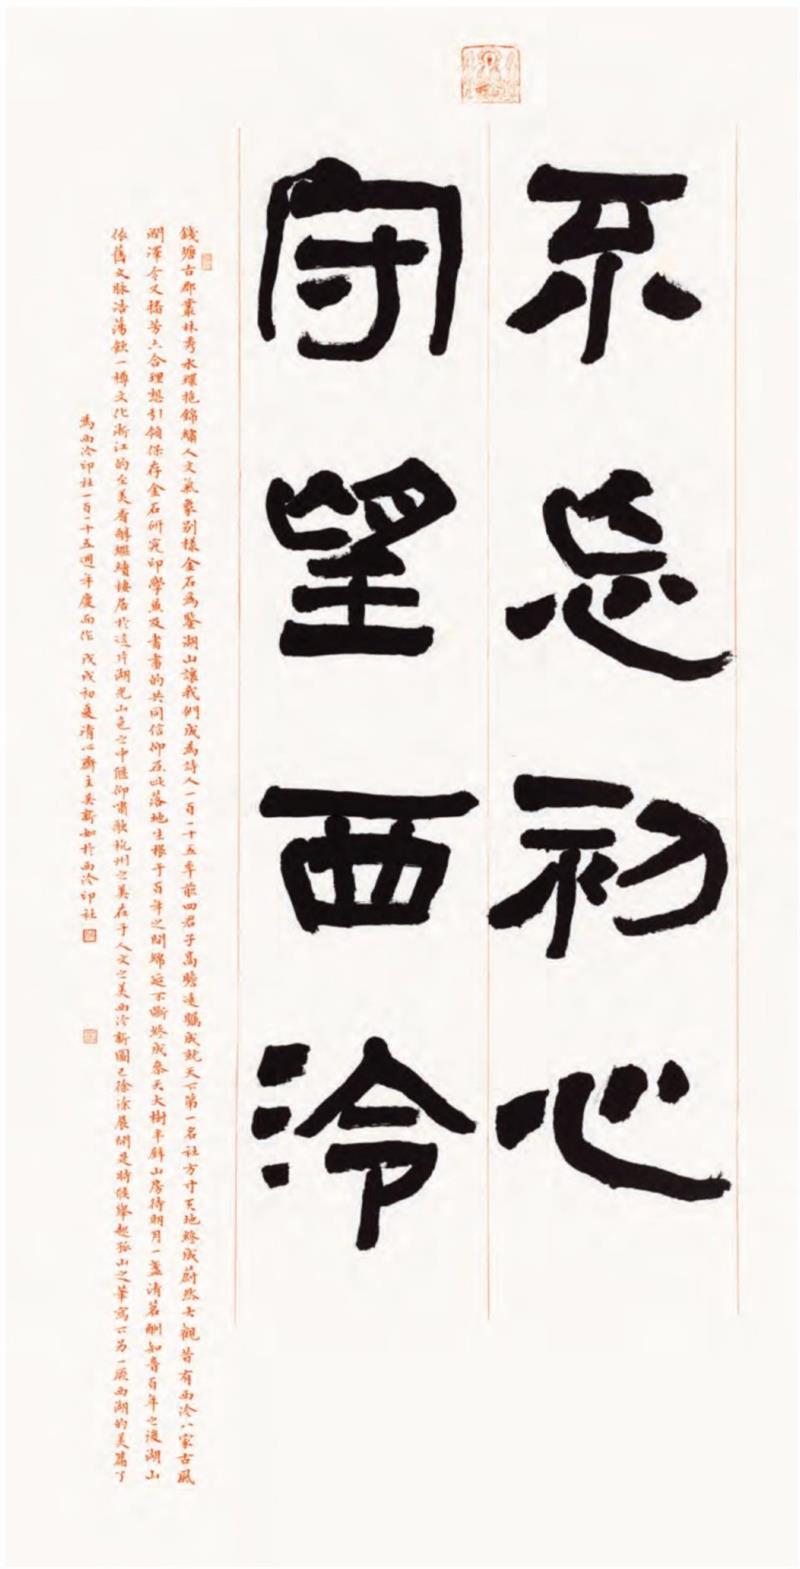 不忘初心
守望西泠
錢塘古郡叢林秀水環抱錦繡人文氣象別樣金石為鑒湖山讓我們成為詩人一百一十五年前四君子高瞻遠矚成就天下第一名社方寸天地終成蔚然大觀昔有西泠八家古風
潤澤今又播芳六合理想引領保存金石研究印學兼及書畫的共同信仰在此落地生根于百年之間綿延不斷終成參天大樹半山房待明月一盞清茗酬知音百年之後湖山
依舊文脉浩蕩飲一樽文化浙江的至美香醇繼續棲居於這片湖光山色之中俯仰嘯歌杭州之美在于人文之美西泠新圖已徐徐展開是時候舉起孤山之筆寫下另一頁西湖的美篇了
為西泠印社一百一十五週年慶而作 戊戌初夏清心齋主吳新如於西泠印社